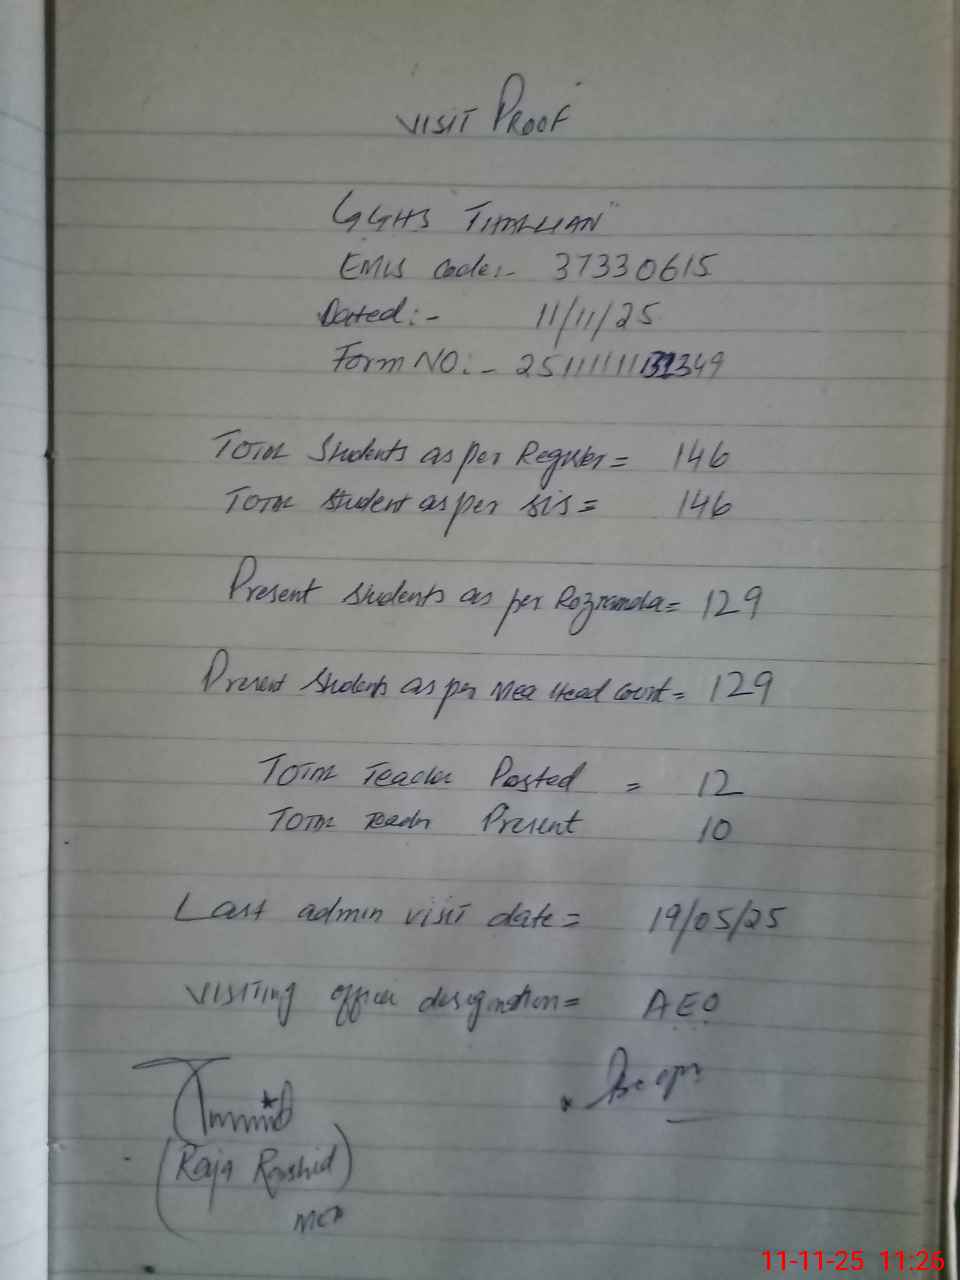 VISIT PROOF
GGHS "THALLIAN"
EMIS Code:- 37330615
Dated:- 11/11/25
Form NO:- 25111111131349
TOTAL Students as per Register = 146
TOTAL Student as per SIS = 146
Present Students as per Roznamcha = 129
Present Students as per Mea Head Count = 129
TOTAL Teacher Posted = 12
TOTAL Teacher Present 10
Last admin visit date = 19/05/25
VISITING officer designation = AEO
(Raja Rashid)
MEA
11-11-25 11:26